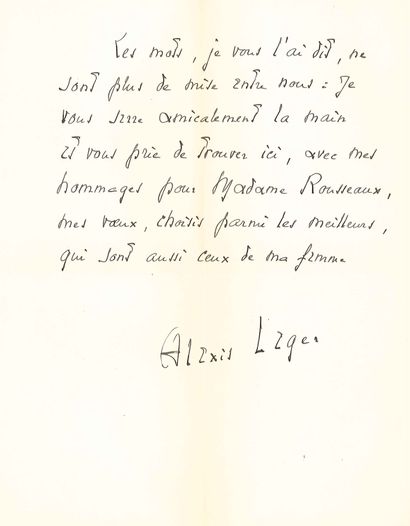 Les mots, je vous l'ai dit, ne
sont plus de mise entre nous : Je
vous serre amicalement la main
et vous prie de trouver ici, avec mes
hommages pour Madame Rousseaux,
mes vœux, choisis parmi les meilleurs,
qui sont aussi ceux de ma femme
Alexis Leger